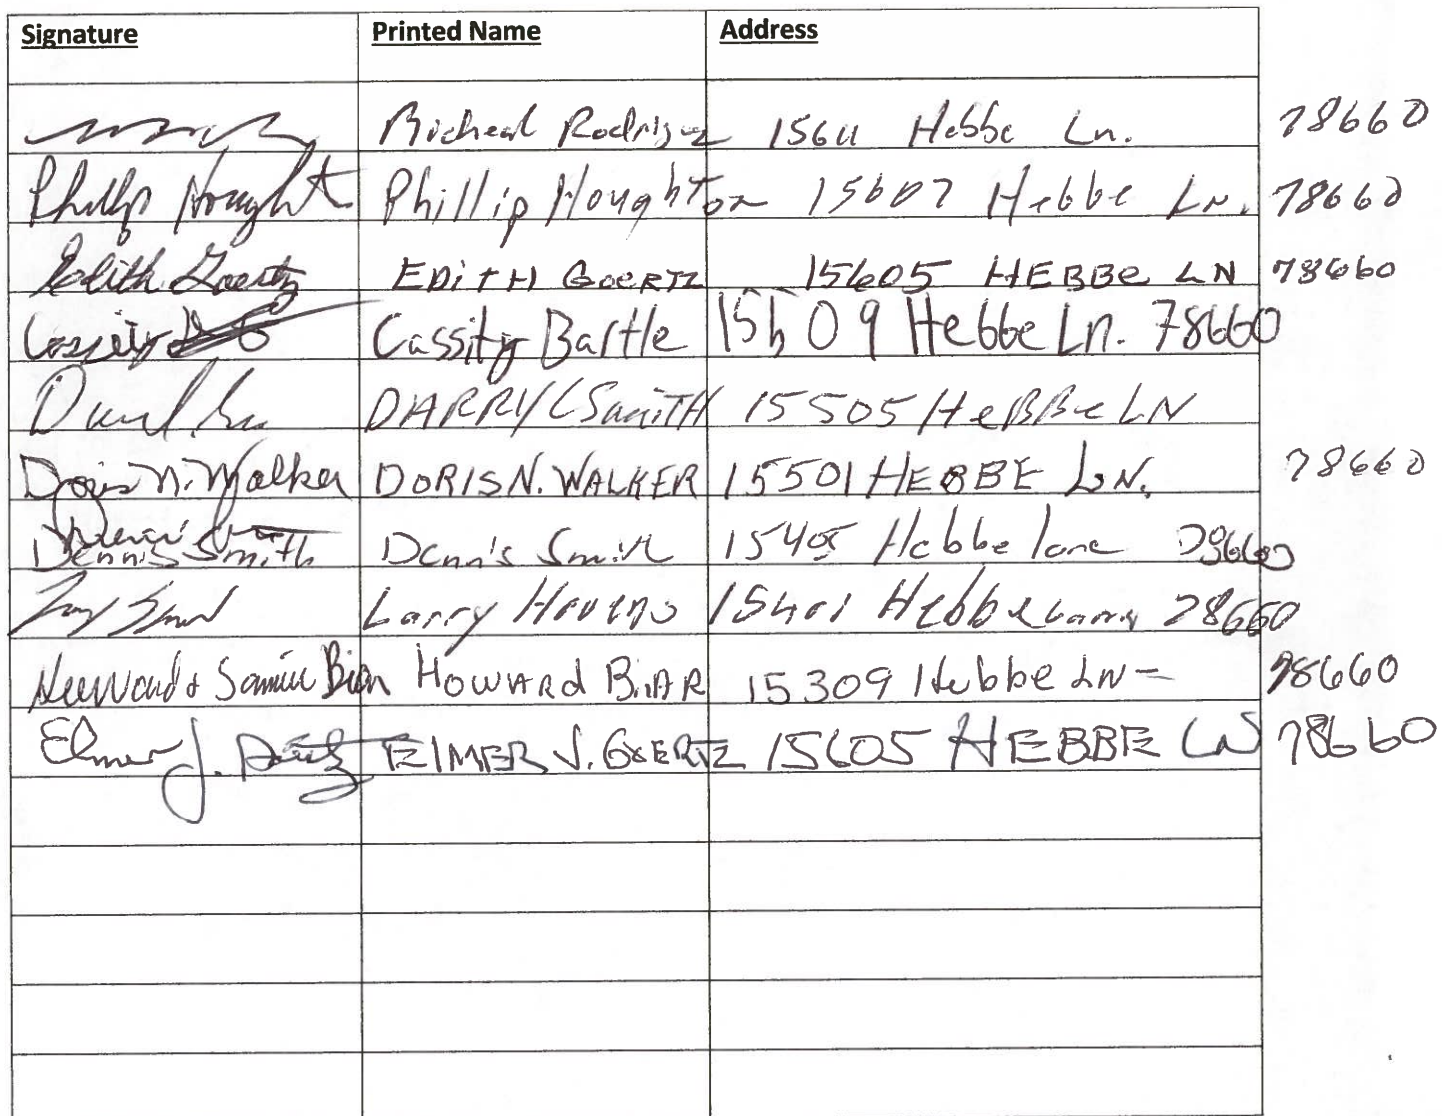 Signature Printed Name Address
Micheal Rodriguez 15611 Hebbe Ln. 78660
Phillip Hought Phillip Houghton 15607 Hebbe Ln. 78660
Edith Goertz EDITH GOERTZ 15605 HEBBE LN 78660
Cassity Cassity Bartle 15509 Hebbe Ln. 78660
DARRYL SMITH 15505 HEBBE LN
Doris N. Walker DORIS N. WALKER 15501 HEBBE LN. 78660
Dennis Smith Dennis Smith 15405 Hebbe lane 78660
Larry Havens 15401 Hebbe 78660
Howard BiAR 15309 Hebbe LN- 78660
Elmer J. Goertz ELMER J. GOERTZ 15605 HEBBE LN 78660